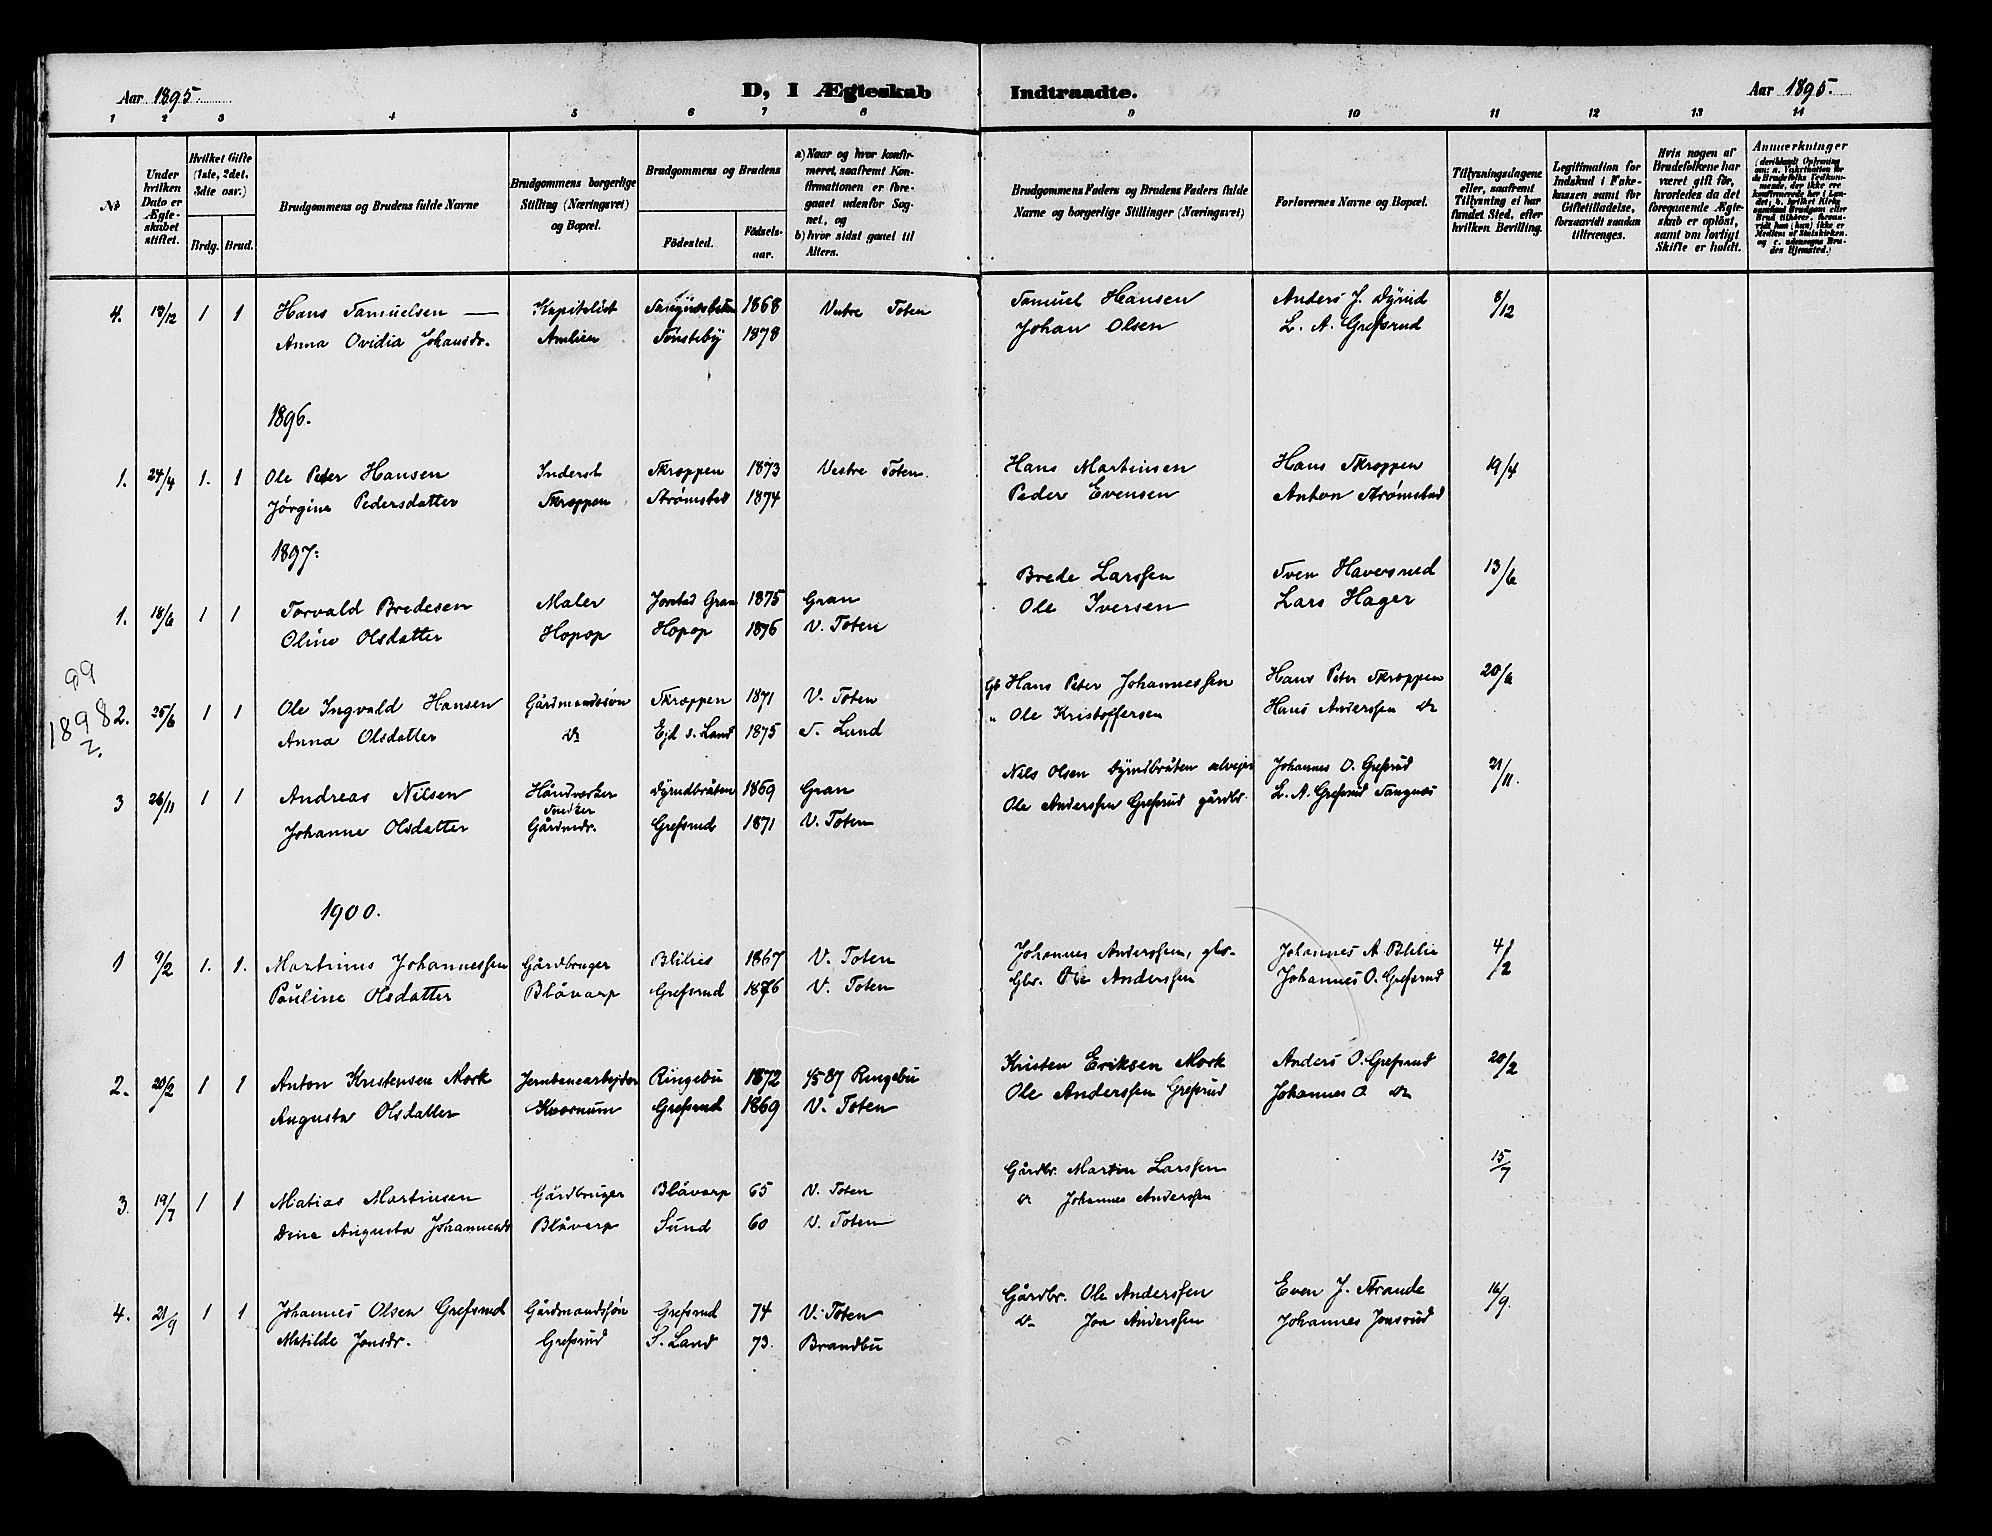 Aar 1895.
D, I Ægteskab Indtraadte.
Aar 1895.
1 2 3 4 5 6 7 8 9 10 11 12 13 14
№
Under hvilken Dato er Ægteskabet stiftet.
Hvilket Gifte (1ste, 2det, 3die osv.)
Brdg. Brud.
Brudgommens og Brudens fulde Navne
Brudgommens borgerlige Stilling (Næringsvei) og Bopæl.
Brudgommens og Brudens
Födested. Födselsaar.
a) Naar og hvor konfirmeret, saafremt Konfirmationen er foregaaet udenfor Sognet, og
b) hvor sidst gaaet til Alters.
Brudgommens Faders og Brudens Faders fulde Navne og borgerlige Stillinger (Næringsvei)
Forlovernes Navne og Bopæl.
Tillysningsdagene eller, saafremt Tillysning ei har fundet Sted, efter hvilken Bevilling.
Legitimation for Indskud i Enkekassen samt for Giftetilladelse, forsaavidt saadan tiltrænges.
Hvis nogen af Brudefolkene har været gift før, hvorledes da det foregaaende Ægteskab er opløst, samt om lovligt Skifte er holdt.
Anmerkninger
4. 18/12 1 1 Hans Samuelsen — Kapitalist 1868 Vestre Toten Samuel Hansen Anders J. Dyrud 8/12
Anna Ovidia Johansdr. Amlien Tønsteby 1878 Johan Olsen L. A. Grefsrud
1896.
1. 24/4 1. 1 Ole Peter Hansen Inderst Skroppen 1873 Vestre Toten. Hans Martinsen Hans Skroppen 19/4
Jørgine Pedersdatter Skroppen Strømstad 1874 Peder Evensen Anton Strømstad
1897:
1. 18/6 1 1 Torvald Bredesen Maler Jorstad Gran 1875 Gran Brede Larssen Sven Haversrud 13/6
Oline Olsdatter Hopop Hopop 1876 V. Toten Ole Iversen Lars Hager
99
1898
2. 25/6 1 1 Ole Ingvald Hansen Gårdmandssøn Skroppen 1871 V. Toten Gb Hans Peter Johannessen Hans Peter Skroppen 20/6
Anna Olsdatter do Ejd s. Land 1875 S. Lund " Ole Kristoffersen Hans Anderssen do
3 26/11 1 1 Andreas Nilsen Håndverker Dyrudbråten 1869 Gran Nils Olsen Dyrudbråten selvejer Johannes O. Grefsrud 21/11.
Snedker
Johanne Olsdatter Gårdmdr. Grefsrud 1871 V. Toten Ole Anderssen Grefsrud gårdbr. L. A. Grefsrud Sangnæs
1900.
1 9/2 1. 1. Martinus Johannessen Gårdbruger Blilie 1867 V. Toten Johannes Anderssen, gbr. Johannes A. Blilie 4/2
Pauline Olsdatter Blåvarp Grefsrud 1876 V. Toten Gbr. Ole Anderssen Johannes O. Grefsrud
2. 20/2 1 1 Anton Kristensen Mork Jernbanearbejder Ringebu 1872 Ringebu Kristen Eriksen Mork Anders O. Grefsrud 20/2
Augusta Olsdatter Kværnum Grefsrud 1869 V. Toten Ole Anderssen Grefsrud Johannes O do
3. 19/7 1 1 Matias Martinsen Gårdbruger Blåvarp 65 V. Toten Gårdbr. Martin Larssen 15/7
Dina Augusta Johannesdr Blåvarp Sund 60 V. Toten do Johannes Anderssen
4. 21/9 1 1 Johannes Olsen Grefsrud Gårdmandssøn Grefsrud 74 V. Toten Gårdbr. Ole Anderssen Even J. Strande 16/9.
Matilde Jonsdr. Grefsrud S. Land 73. Brandbu do Jon Anderssen Johannes Jonsrud